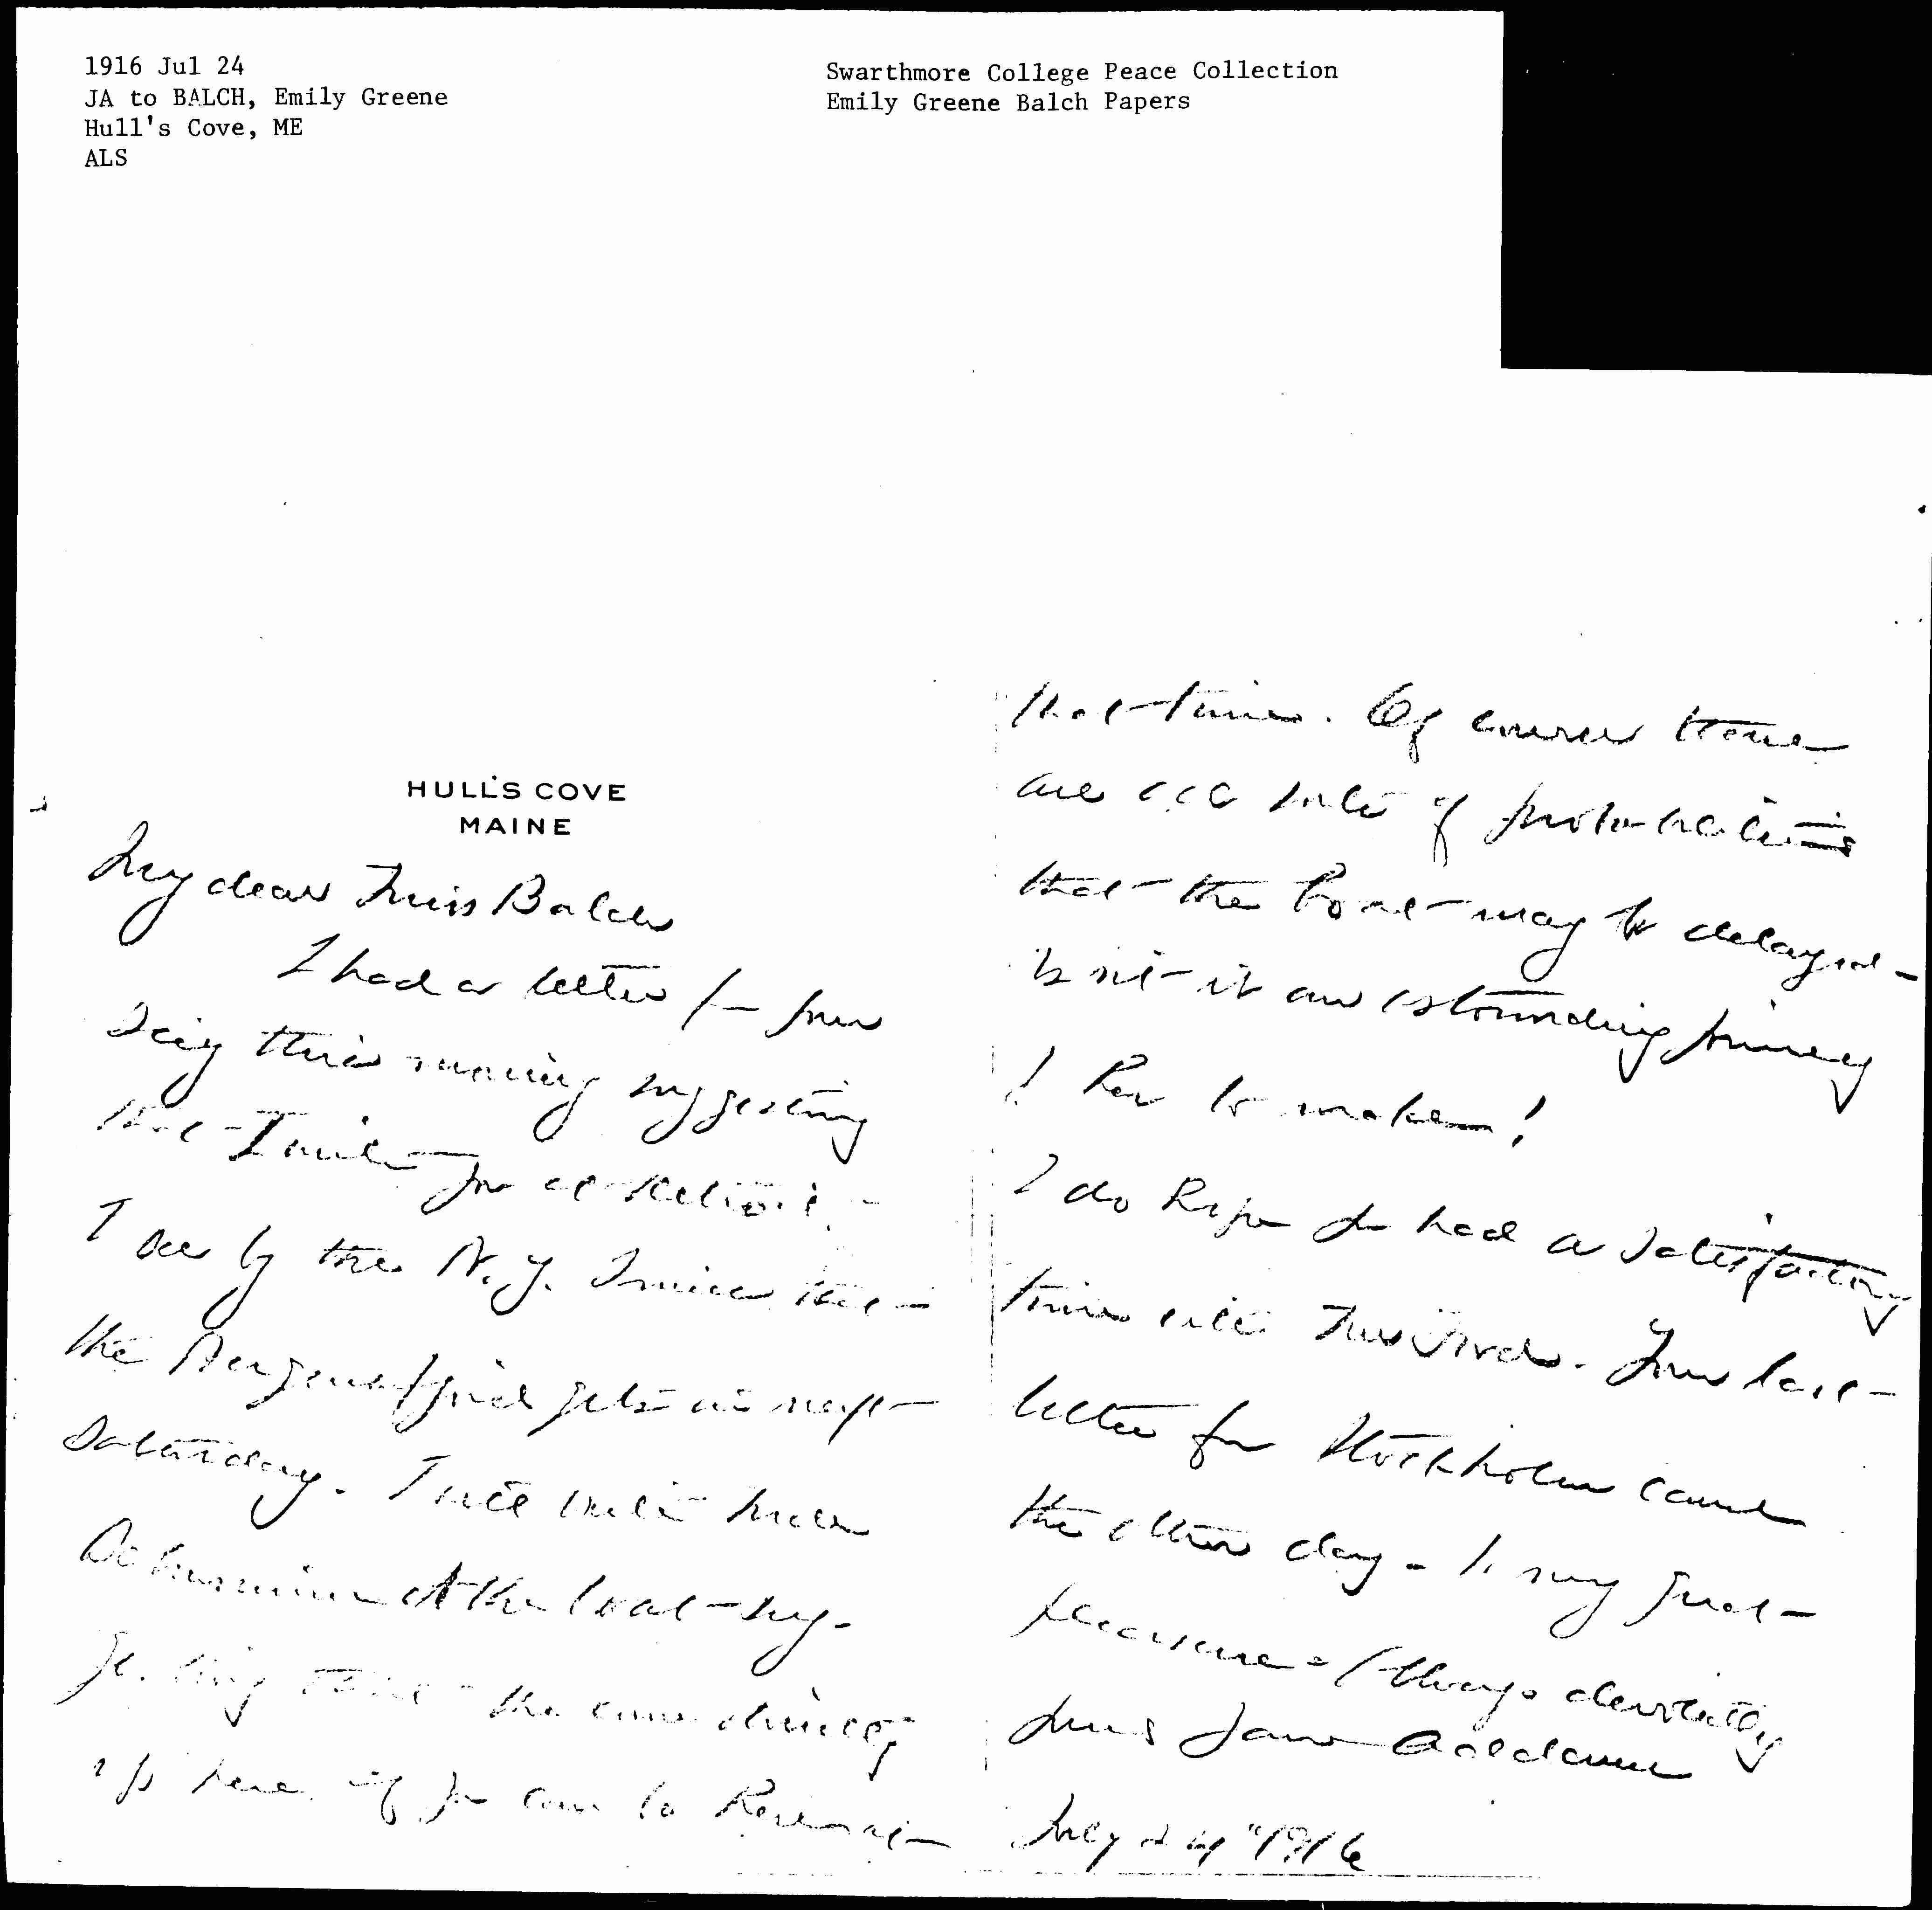 1916 Jul 24
JA to BALCH, Emily Greene
Hull's Cove, ME
ALS
Swarthmore College Peace Collection
Emily Greene Balch Papers
HULL'S COVE
MAINE
My dear Miss Balch
I had a letter from
this morning suggesting
that I
I see by the N.Y. Times that
the Bergensfjord gets in next
Saturday. I will write Miss
at the boat – sug-
gesting that she come directly
up here if you can be here at
that time. Of course there
are all sorts of probabilities
that the boat may be delayed –
Is not it an astounding journey
for her to make!
I do hope you had a satisfactory
time with Mr Ford. Your last
letter from Stockholm came
the other day – to my great
pleasure – Always devotedly
yours Jane Addams
July 24" 1916